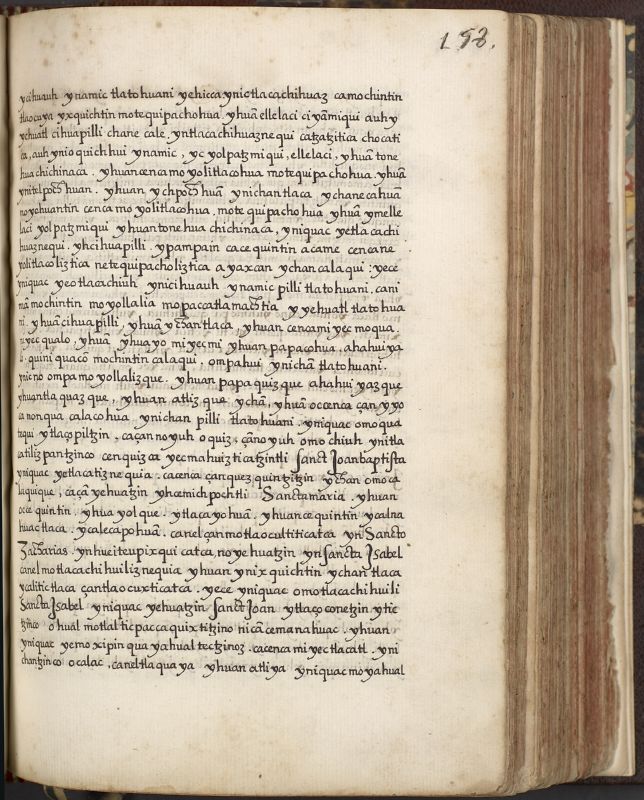 158.
ycihuauh ynamic tlatohuani yehicca ynic tlacachihuaz camochintin
tlaocuya yxquichtin motequipachohua. yhuā ellelaci ciyāmiqui auh y
ychuatl cihuapilli chane cale, yntlacachihuaznequi cātzatzitica chocati
ca, auh ynio quichhui ynamic, yc yolpatzmiqui, ellelaci, yhuā tone
hua chichinaca. yhuan cenca mo yolitlacohua motequipachohua. yhuā
ynitelpoch huan. yhuan ychpoch huā ynichantlaca ychanecahuā
noyehuantin cenca mo yolitlacohua. motequipachohua yhuā ymelle
laci yolpatzmiqui yhuan tonehua chichinaca, yniquac yetlacachi
huaznequi. yhcihuapilli. ypampain cacequintin acame cencane
yolitlacoliztica netequipacholiztica ayaxcan ychan calaqui : yece
yniquac yeotlacachiuh ynicihuauh ynamic pilli tlatohuani, canì
mā mochintin moyollalia mopaccatlamachtia yyehuatl tlatohua
ni. yhuā cihuapilli, yhuā ychantlaca, yhuan cencamiyec moqua.
miyec qualo, yhuā yhuayo miyecmi yhuan papacohua, ahahuiya
lo. quiniquacō mochintin calaqui, ompahui ynichā tlatohuani.
ynic no ompa moyollalizque. yhuan papaquizque ahahuiyazque
yhuantlaquazque, yhuan atlizque ychā, yhuā occenca çan yyo
ca nonqua calacohua ynichan pilli tlatohuani. yniquac omoqua
tequi ytlaçopiltzin, caçan noyuh oquiz, çāno yuh omochiuh ynitla
catilizpantzinco cenquizca yecmahuiztica tzintli Sanct Joan baptista
yniquac yetlacatiznequia. cacenca çanquezquintzitzin ychan omoca
laquique, caçā yehuatzin yhcemichpochtli Sancta maria. yhuan
occequintin. yhua yolque. ytlaçayohuā. yhuan cequintin ycalna
huac tlaca. ycalecapohuā. canel çan motlaocultiticatca yn Sancto
Zacharias. ynhueiteupixqui catca, noyehuatzin yn Sancta Jsabel
canel motlacachihuiliznequia yhuan ynixquichtin ychan tlaca
ycalitic tlaca çantlaocuxticatca. yece yniquac omotlacachihuili
Sancta Jsabel yniquac yehuatzin Sanct Joan ytlaçoconetzin ytic
tzinco ohualmotlaltic pacca quixtitzino nicā cemanahuac. yhuan
yniquac yemoxipinqua yahualtectzinoz. cacenca miyectlacatl. yni
chantzinco ocalac, caneltlaquaya yhuan atliya yniquac moyahual